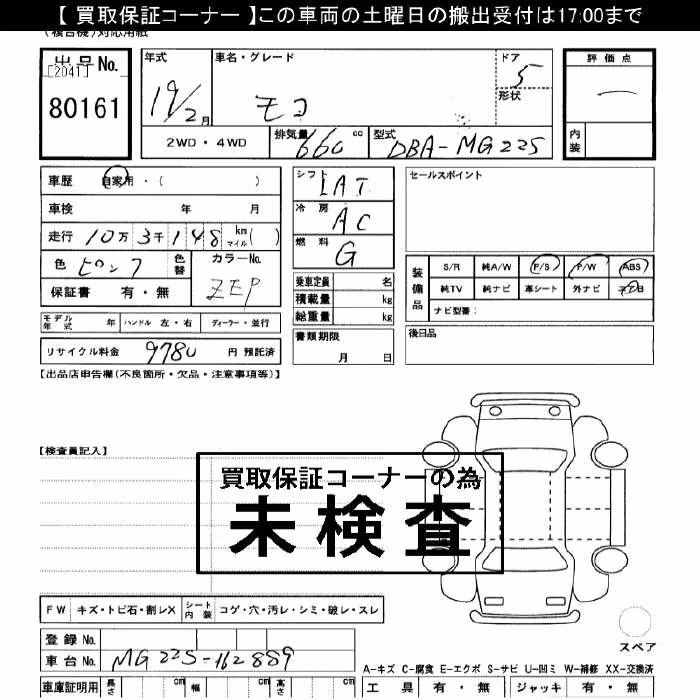 【 買取保証コーナー 】この車両の土曜日の搬出受付は17:00まで
(複合機)対応用紙
出品No.
[2041]
80161
年式 車名・グレード ドア
19/2月 モコ 5
形状
2WD・4WD 排気量 660 cc 型式 DBA-MG22S
評価点
内装
車歴 自家用・( )
車検 年 月
走行 10万3千148 km マイル( )
色 ピンク 色替 カラーNo.
保証書 有・無 ZEP
モデル年式 年 ハンドル 左・右 ディーラー・並行
リサイクル料金 9780 円 預託済
シフト IAT
冷房 AC
燃料 G
乗車定員 名
積載量 kg
総重量 kg
書類期限
月 日
セールスポイント
装備品 S/R 純A/W P/S P/W ABS
純TV 純ナビ 革シート 外ナビ
ナビ型番:
後日品
【出品店申告欄(不良箇所・欠品・注意事項等)】
【検査員記入】
買取保証コーナーの為
未検査
FW キズ・トビ石・割レX シート内装 コゲ・穴・汚レ・シミ・破レ・スレ
スペア
登録 No.
車台 No. MG22S-162889
A-キズ C-腐食 E-エクボ S-サビ U-凹ミ W-補修 XX-交換済
車庫証明用 長さ cm 幅 cm 高さ cm
工具 有・無 ジャッキ 有・無